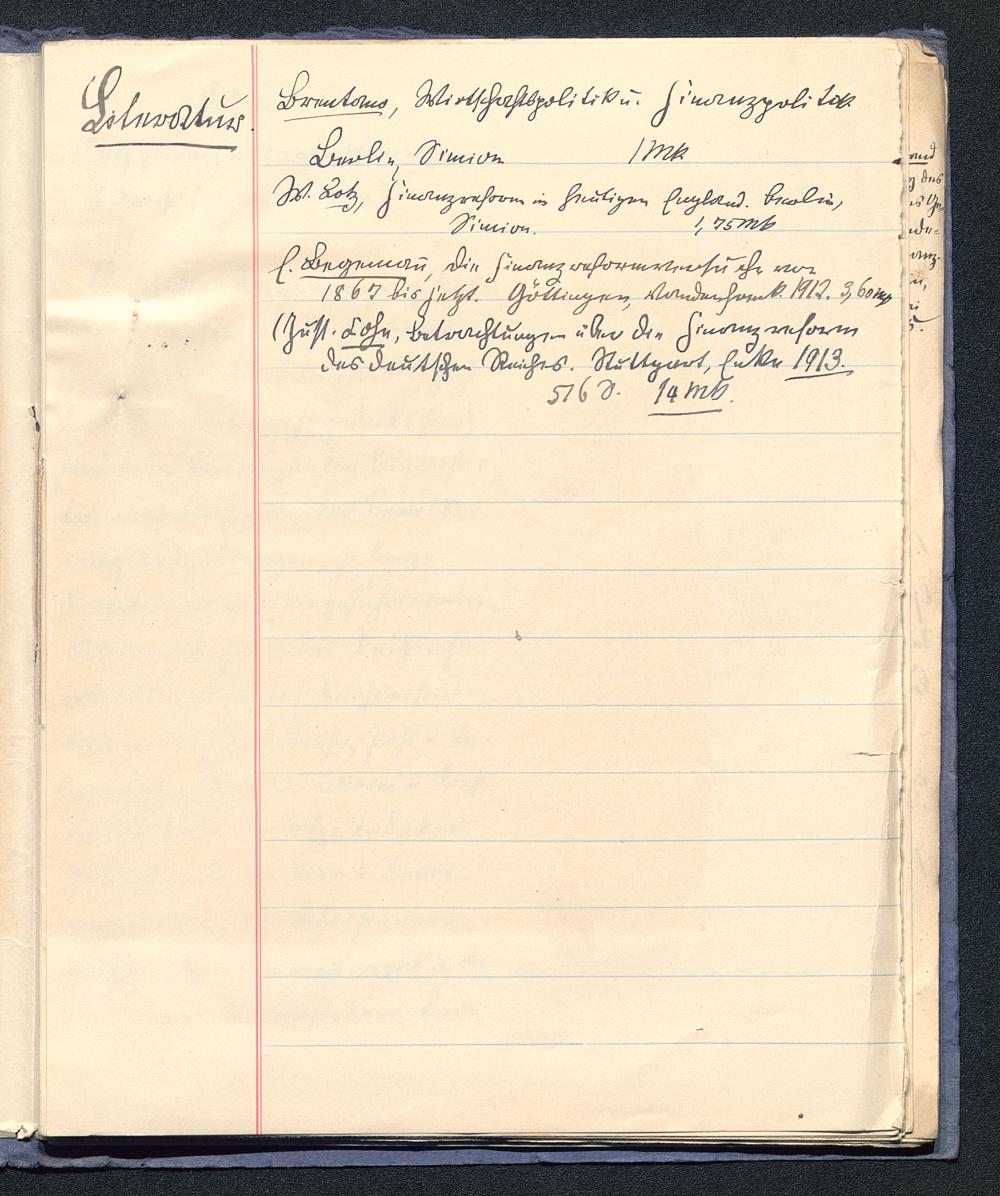 Literatur.
Brentano, Wirtschaftspolitik u. Finanzpolitik
Berlin, Simion 1 Mk
W. Lotz, Finanzreform im heutigen England. Berlin,
Simion. 1,75 Mk
E. Begemann, die Finanzreformversuche von
1867 bis jetzt. Göttingen, Vandenhoeck. 1912. 3,60 M
(Just. Cohn, Betrachtungen über die Finanzreform
des deutschen Reiches. Stuttgart, Enke 1913.
516 S. 14 Mk.